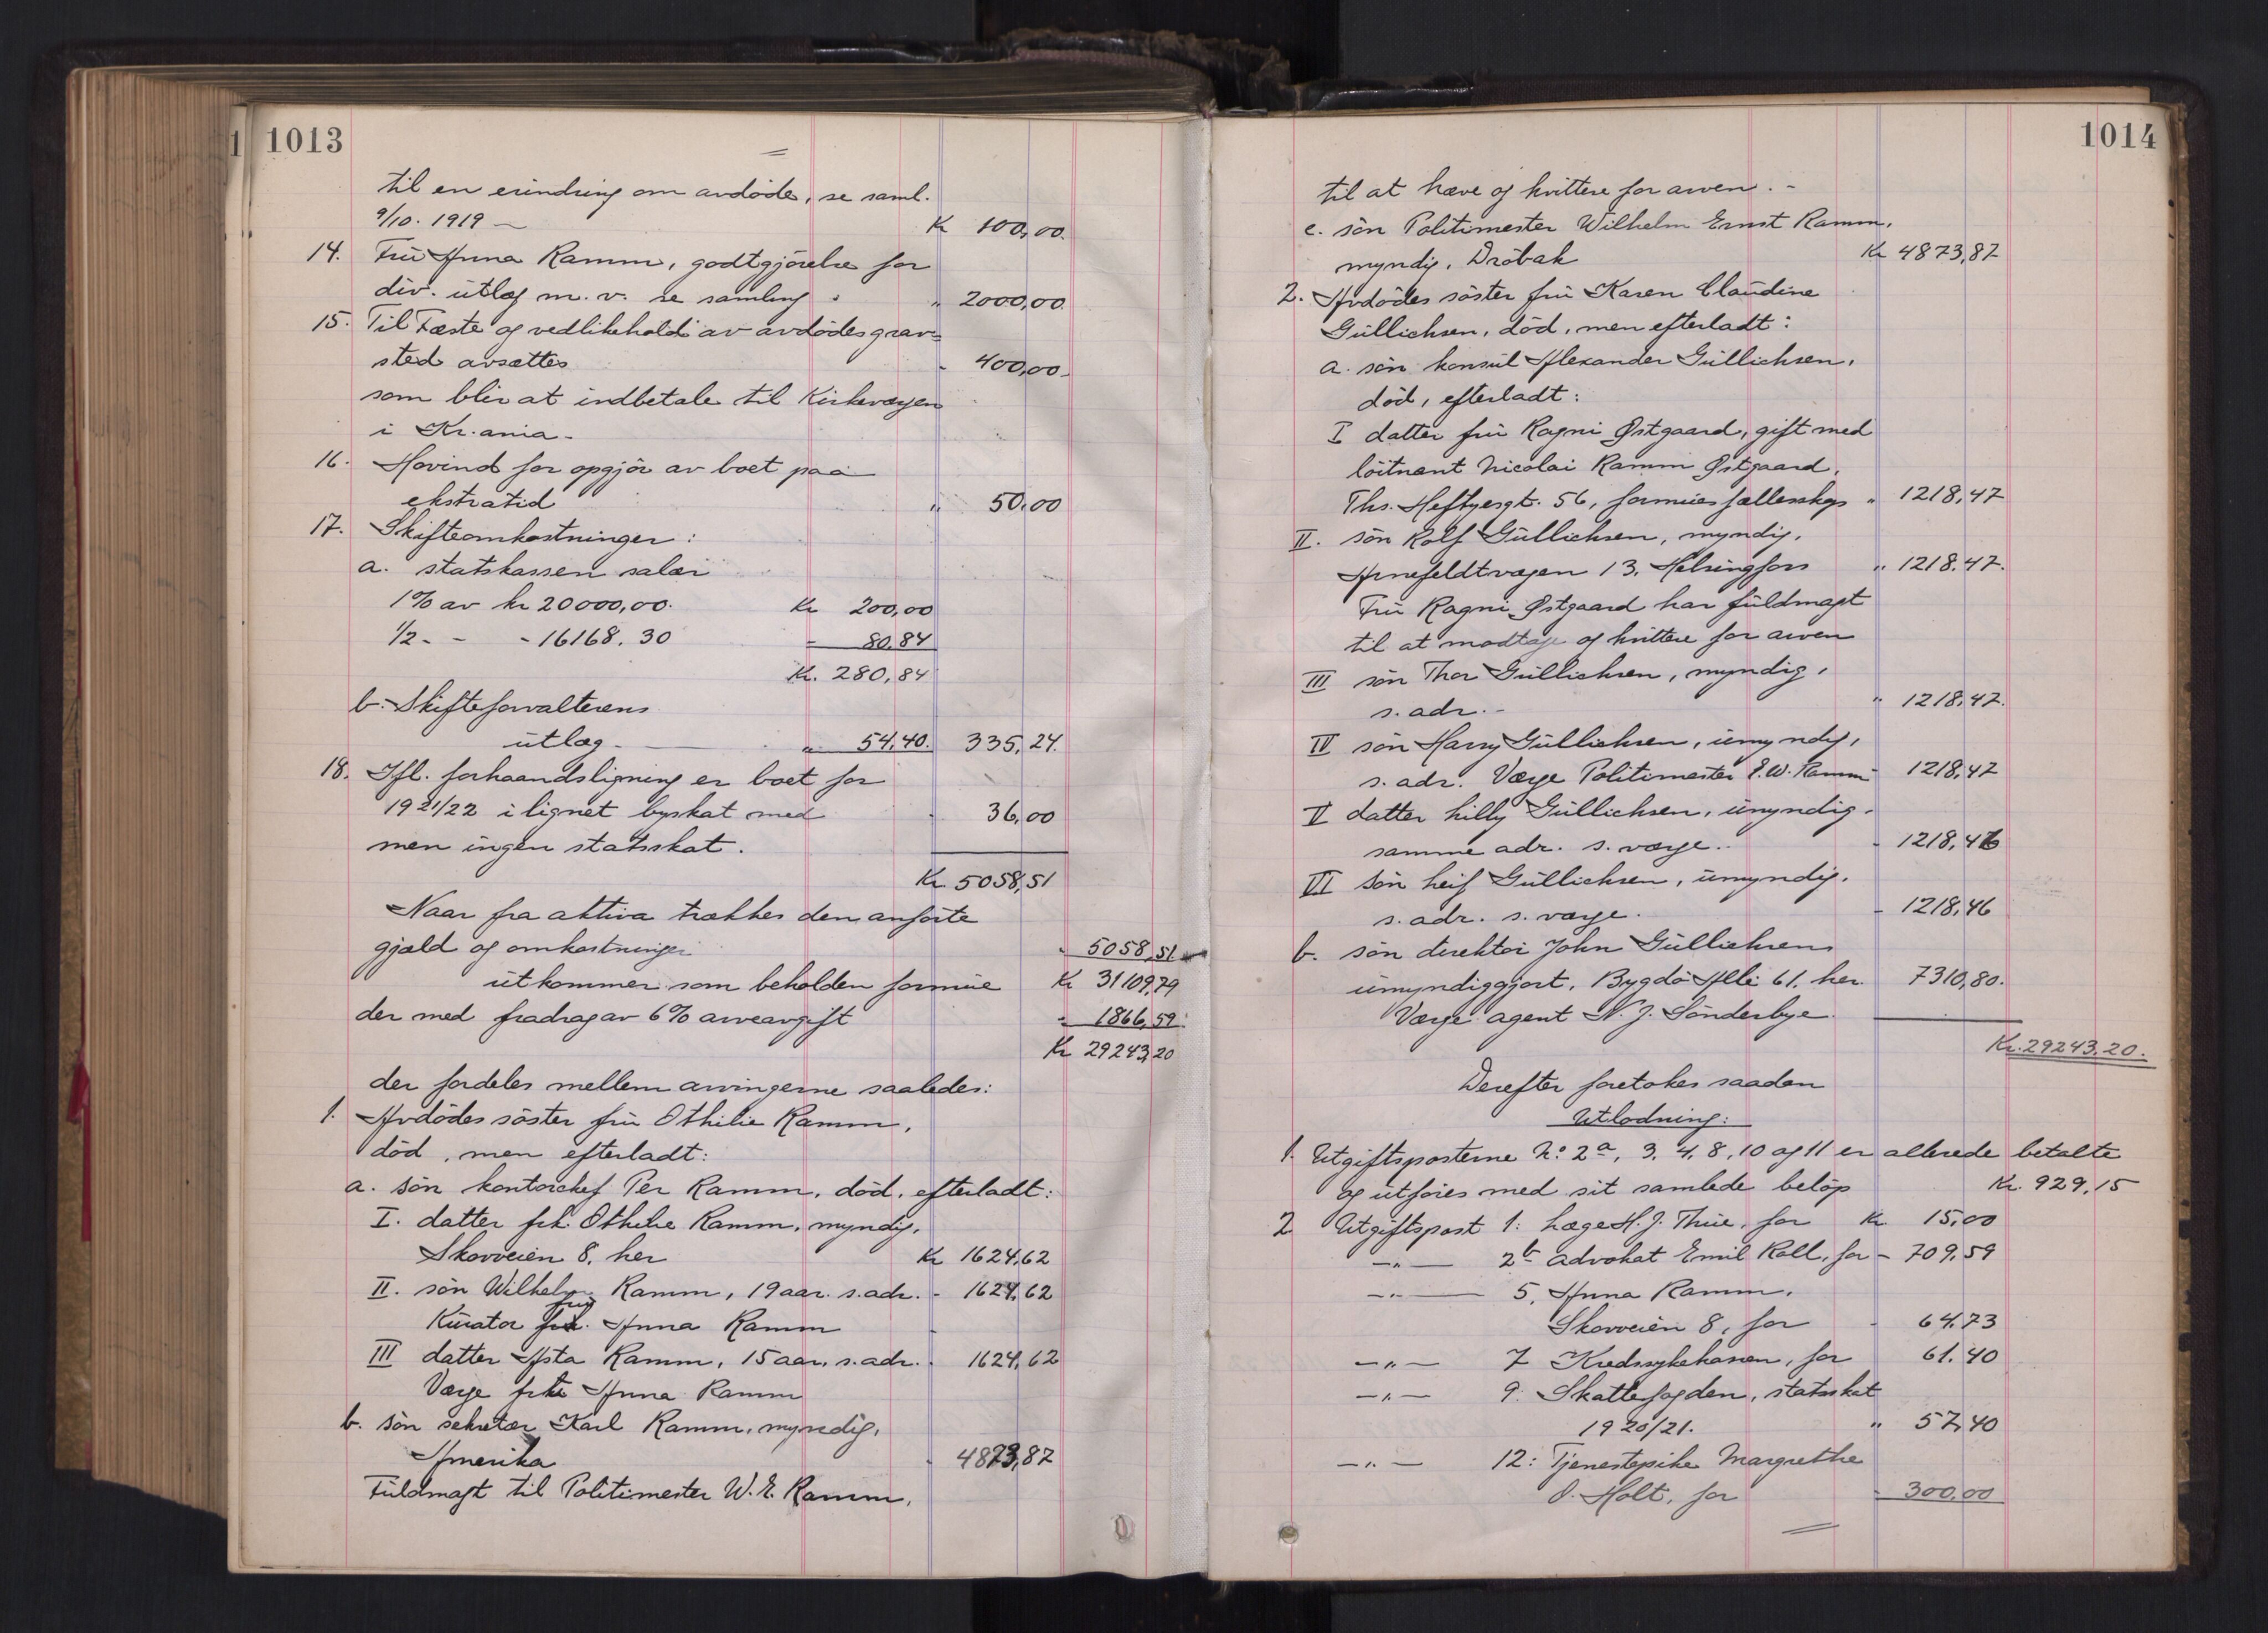 1013
til en erindring om avdøde, se saml.
9/10. 1919 — Kr 100,00.
14. Fru Anna Ramm, godtgjörelse for
div. utlæg m. v. se samling. " 2000,00.
15. Til Fæste og vedlikehold av avdödes grav=
sted avsættes - 400,00-
som blir at indbetale til Kirkevergen
i Kr.ania-
16. Hovind for opgjör av boet paa
ekstratid " 50,00
17. Skifteomkostninger:
a. statskassen salær
1% av kr 20000,00. Kr 200,00
1/2 - - - 16168.30 - 80,84
Kr. 280,84
b. Skifteforvalterens
utlæg - " 54,40. 335,24.
18. Ifl. forhaandsligning er boet for
1921/22 ilignet byskat med - 36,00
men ingen statsskat.
Kr. 5058,51
Naar fra aktiva trækkes den anförte
gjæld og omkostninger - 5058,51
utkommer som beholden formue Kr 31109,79
der med fradrag av 6% arveavgift - 1866,59
Kr 29243,20
der fordeles mellem arvingerne saaledes:
1. Avdödes söster fru Othilie Ramm,
död, men efterladt:
a. sön kontorchef Per Ramm, död, efterladt:
I. datter frk. Othilie Ramm, myndig,
Skovveien 8, her Kr 1624,62
II. sön Wilhelm Ramm, 19 aar. s. adr. - 1624,62
fru
Kurator frk. Anna Ramm
III datter Asta Ramm, 15 aar, s. adr. - 1624,62
Verge fru Anna Ramm
b. sön sekretær Karl Ramm, myndig,
Amerika - 4873,87
Fuldmagt til Politimester W. E. Ramm,
1014
til at hæve og kvittere for arven. -
c. sön Politimester Wilhelm Ernst Ramm,
myndig, Dröbak Kr 4873,87
2. Avdödes söster fru Karen Claudine
Gullichsen, död, men efterladt:
a. sön konsul Alexander Gullichsen,
död, efterladt:
I datter fru Ragni Østgaard, gift med
löitnant Nicolai Ramm Østgaard,
Ths. Heftyesgt. 56, formuesfællesskap " 1218,47
II. sön Rolf Gullichsen, myndig,
Armfeldtvægen 13, Helsingfors " 1218.47.
Fru Ragni Østgaard har fuldmagt
til at modtage og kvittere for arven
III sön Thor Gullichsen, myndig,
s. adr. - " 1218,47.
IV sön Harry Gullichsen, umyndig,
s. adr. Verge Politimester E. W. Ramm - 1218,47
V datter Lilly Gullichsen, umyndig.
samme adr. s. verge. - 1218,46
VI sön Leif Gullichsen, umyndig.
s. adr. s. verge. - 1218,46
b. sön direktör John Gullichsen
umyndiggjort, Bygdö Allé 61, her. 7310,80.
Verge agent N. J. Sönderbye.
Kr. 29243.20.
Derefter foretokes saadan
Utlodning:
1. Utgiftsposterne No 2a, 3. 4. 8, 10 og 11 er allerede betalte
og utföres med sit samlede belöp Kr. 929,15
2 Utgiftspost 1: Læge H. J. Thue, for Kr 15,00
—"— 2b advokat Emil Roll, for - 709,59
—"— 5, Anna Ramm,
Skovveien 8, for - 64.73
—"— 7 Kredssykekassen, for 61.40
—"— 9: Skattefogden, statsskat
1920/21. " 57,40
—"— 12: Tjenestepike Margrethe
O. Holt, for - 300,00